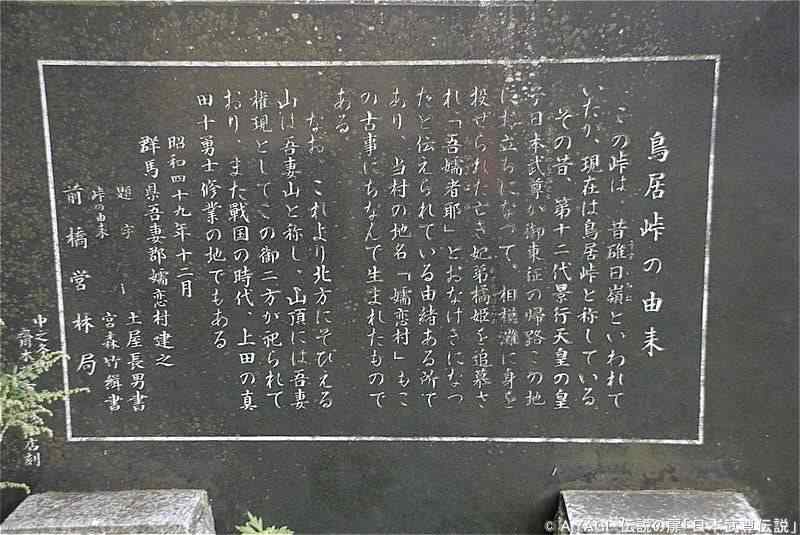 鳥居峠の由来
この峠は、昔碓日嶺といわれて
いたが、現在は鳥居峠と称している。
その昔、第十二代景行天皇の皇
子日本武尊が御東征の帰路この地
にお立ちになって、相模灘に身を
投ぜられた亡き妃弟橘姫を追慕さ
れ「吾嬬者耶」とおなげきになっ
たと伝えられている由緒ある所で
あり、当村の地名「嬬恋村」もこ
の古事にちなんで生まれたもので
ある。
なお、これより北方にそびえる
山は吾妻山と称し、山頂には吾妻
権現としてこの御二方が祀られて
おり、また戦国の時代、上田の真
田十勇士修業の地でもある。
昭和四十九年十二月
群馬県吾妻郡嬬恋村建之
題字 土屋長男書
峠の由来 宮森竹緝書
前橋営林局
中之条
斎木
店刻
© AYAGE 伝説の扉「日本武尊伝説」